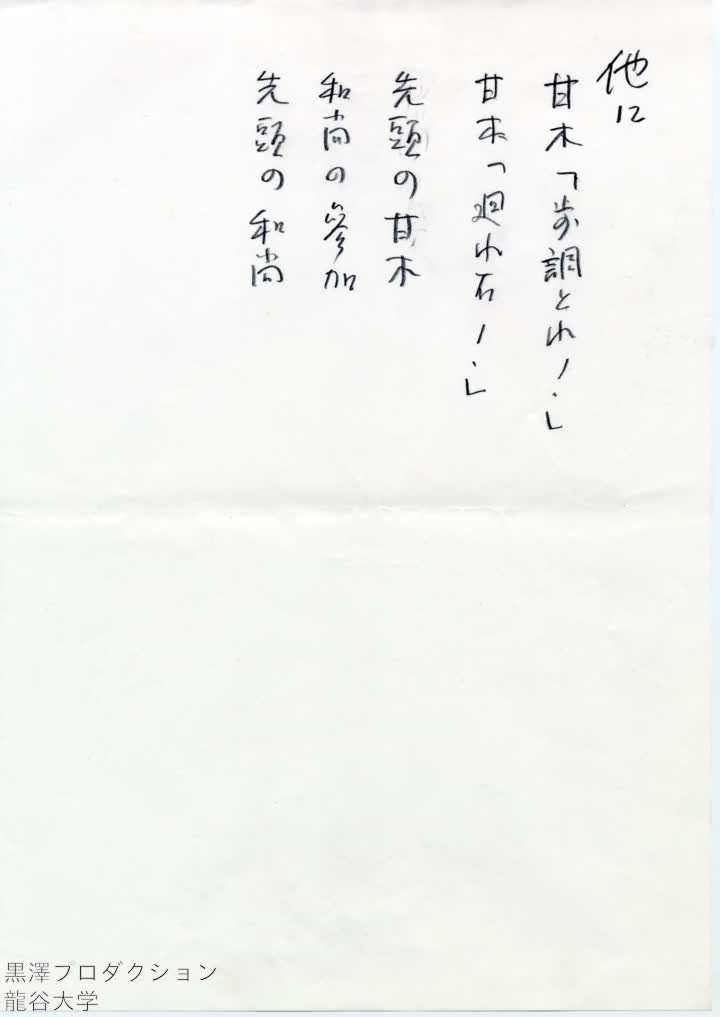 他に
甘木「歩調とれ！」
甘木「廻れ右！」
先頭の甘木
和尚の參加
先頭の和尚
黒澤プロダクション
龍谷大学